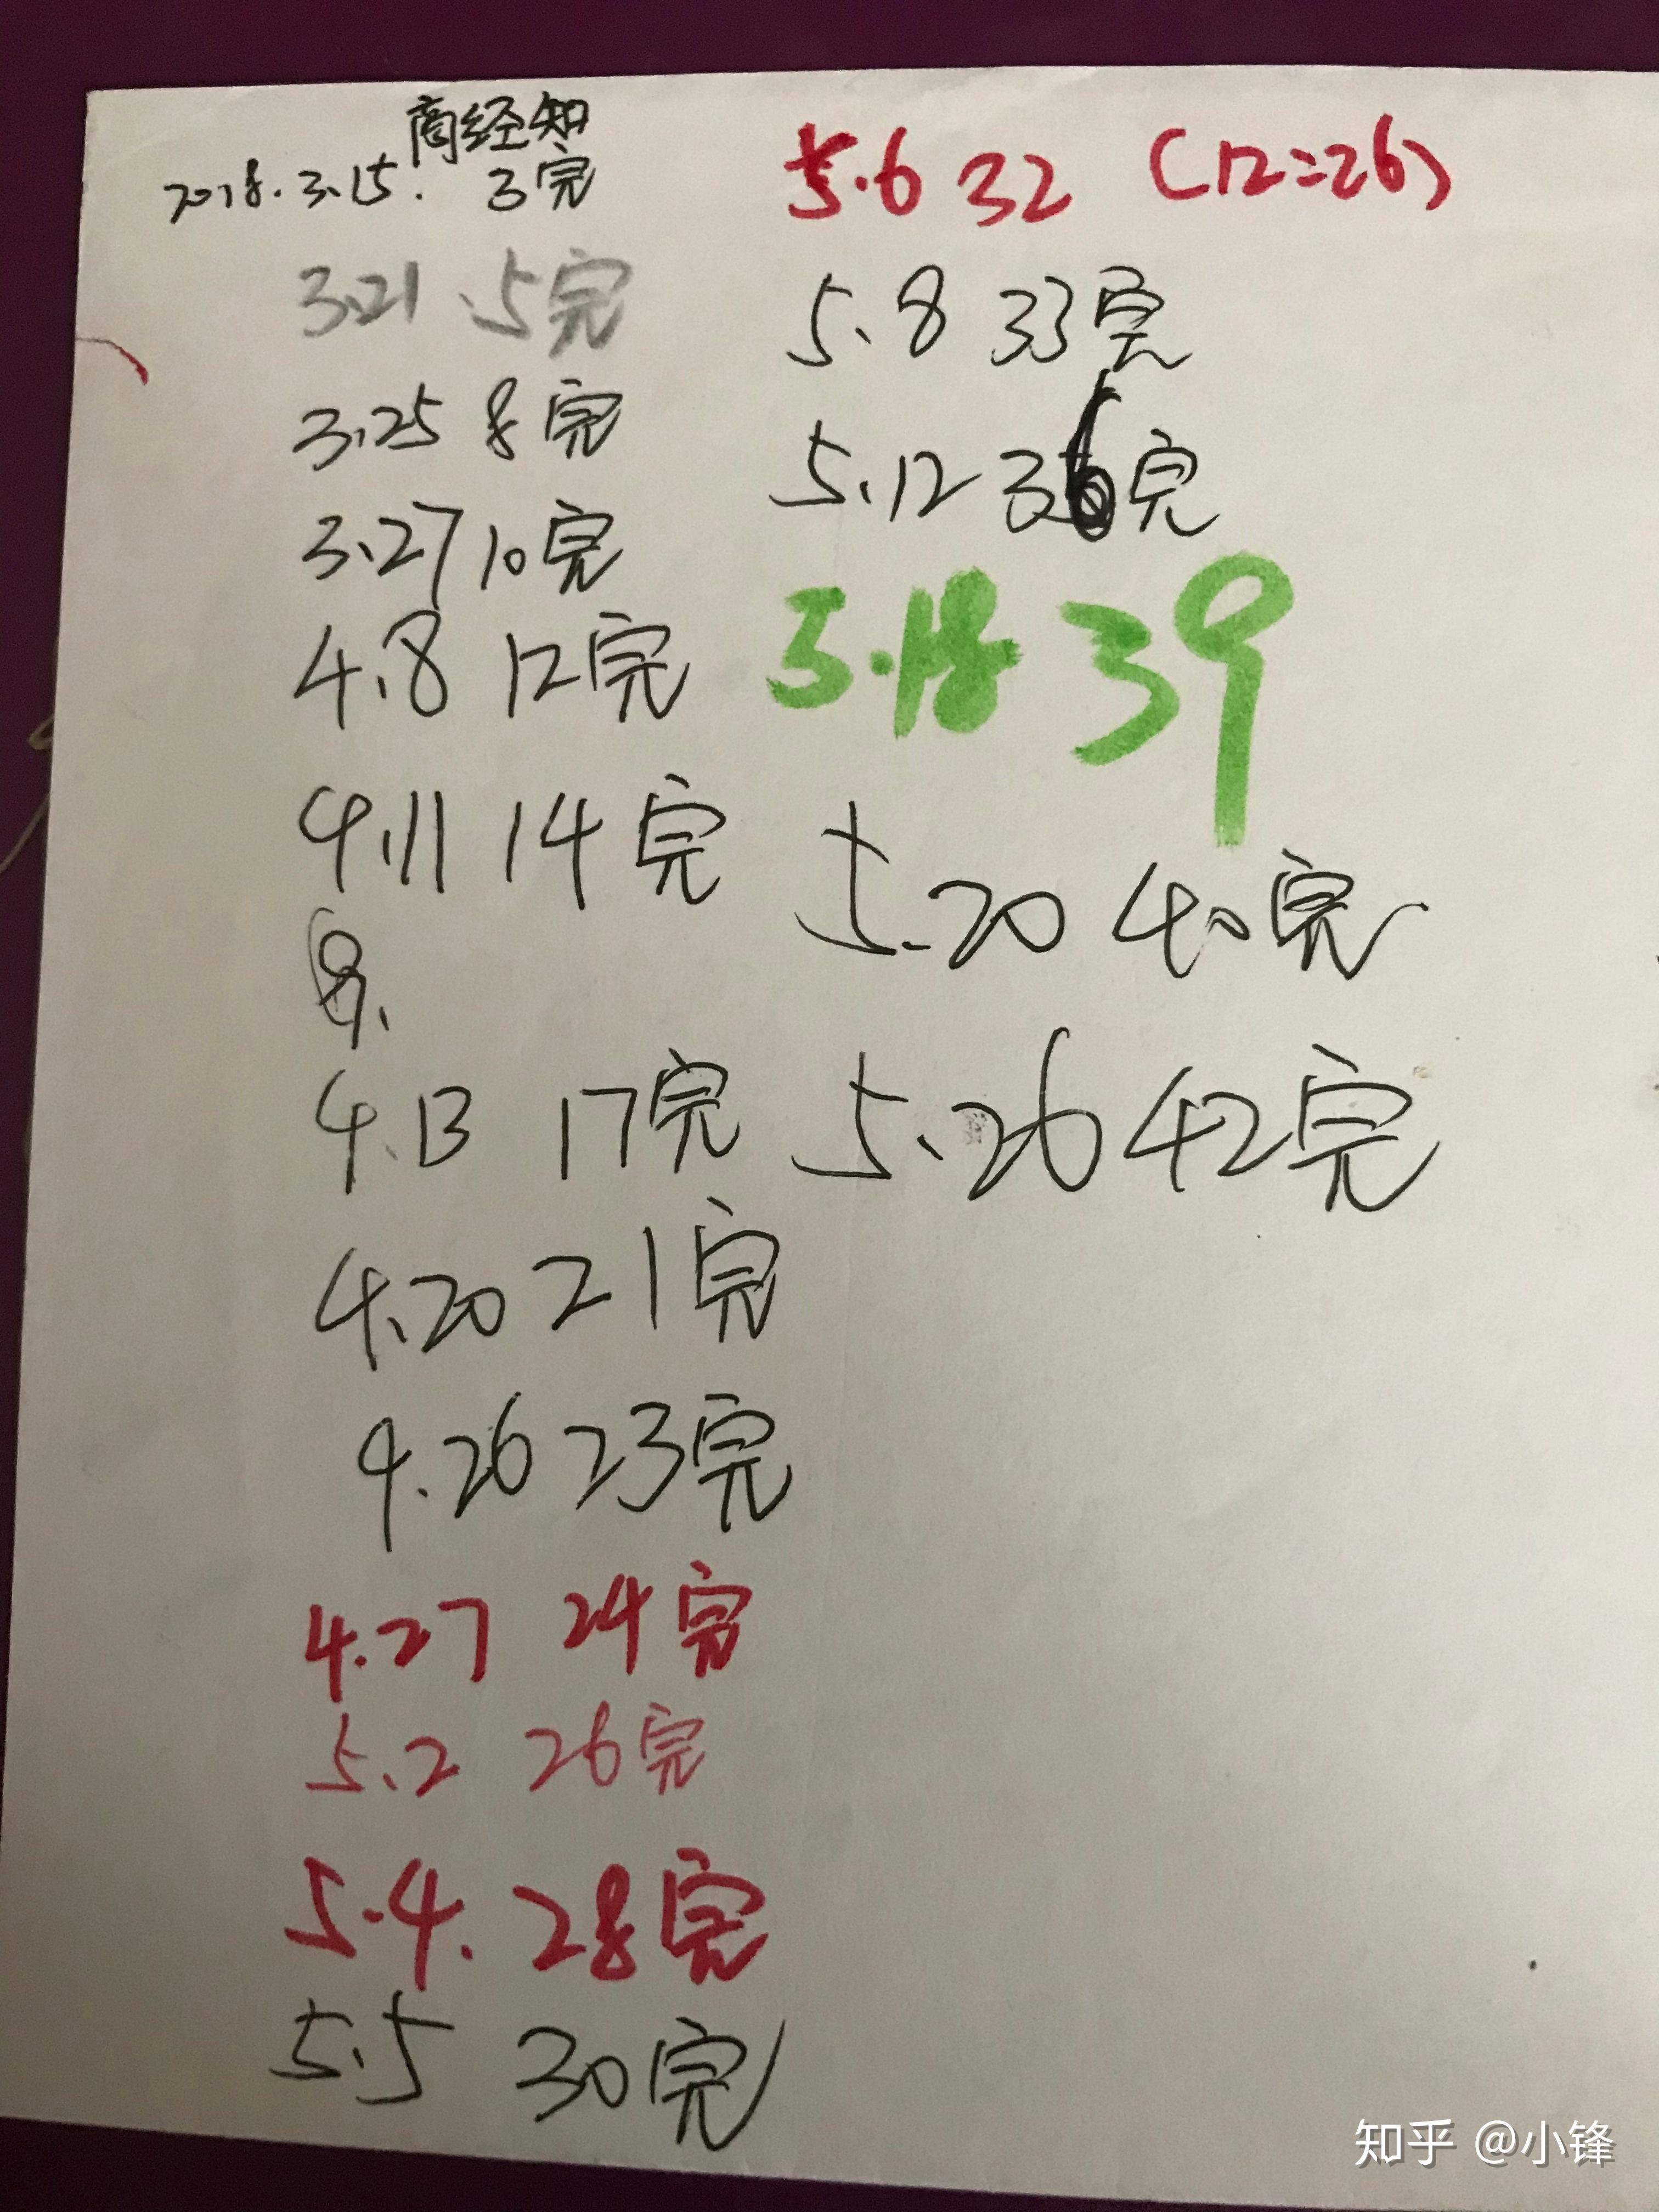 商经知
2018.3.15. 3完
3.21 .5完
3.25 8完
3.27 10完
4.8 12完
4.11 14完
4.13 17完
4.20 21完
4.26 23完
4.27 24完
5.2 26完
5.4. 28完
5.5 30完
5.6 32 (12=26)
5.8 33完
5.12 36完
5.18 39
5.20 40完
5.26 42完
知乎 @小锋